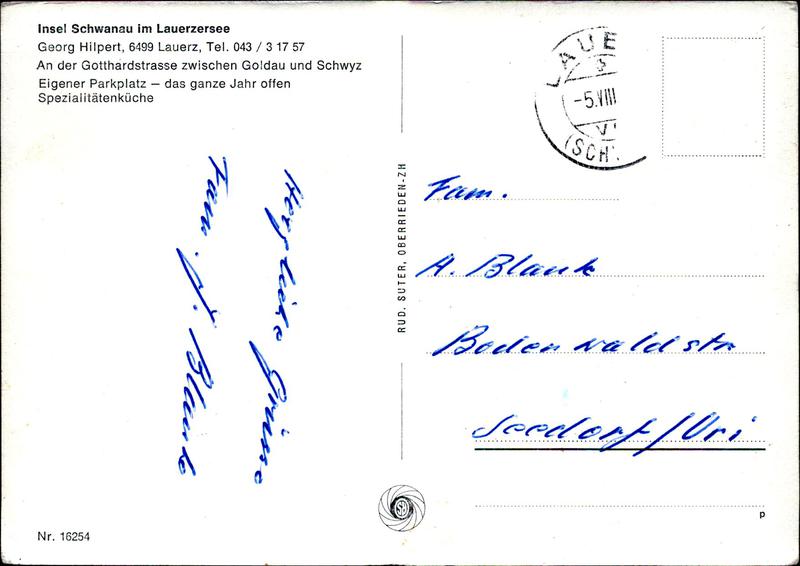 Insel Schwanau im Lauerzersee
Georg Hilpert, 6499 Lauerz, Tel. 043 / 3 17 57
An der Gotthardstrasse zwischen Goldau und Schwyz
Eigener Parkplatz – das ganze Jahr offen
Spezialitätenküche
Herzliche Grüsse
Fam. J. Blank
Nr. 16254
RUD. SUTER, OBERRIEDEN-ZH
LAUE
-5.VIII
(SCH
Fam.
A. Blank
Bodenwaldstr
Seedorf/Uri
p